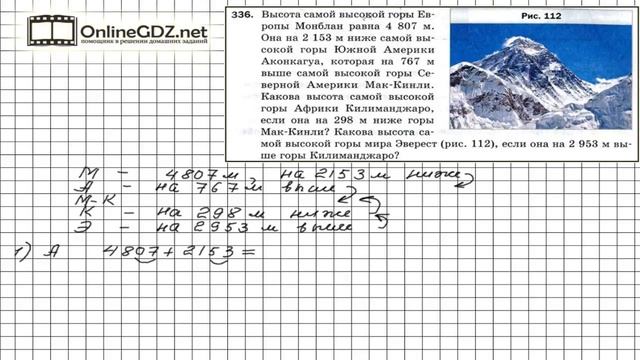 OnlineGDZ.net
помощник в решении домашних заданий
336. Высота самой высокой горы Ев-
ропы Монблан равна 4 807 м.
Она на 2 153 м ниже самой вы-
сокой горы Южной Америки
Аконкагуа, которая на 767 м
выше самой высокой горы Се-
верной Америки Мак-Кинли.
Какова высота самой высокой
горы Африки Килиманджаро,
если она на 298 м ниже горы
Мак-Кинли? Какова высота са-
мой высокой горы мира Эверест (рис. 112), если она на 2 953 м вы-
ше горы Килиманджаро?
Рис. 112
М – 4807 м, на 2153 м ниже
А – на 767 м выше
М-К
К – на 298 м ниже
Э – на 2953 м выше
1) А 4807 + 2153 =